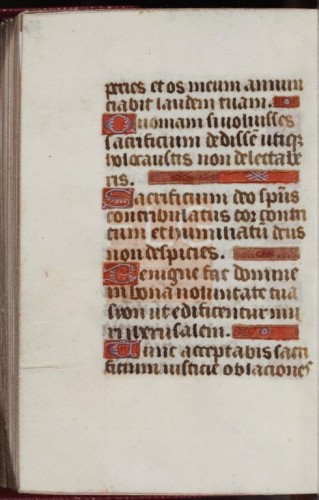 peries et os meum annun
ciabit laudem tuam.
Quoniam si voluisses
sacrificium dedissē utiqȝ
holocaustis non delectabe
ris.
Sacrificium deo spūs
contribulatus cor contri
tum et humiliatū deus
non despicies.
Benigne fac domine
in bona voluntate tua
syon ut edificentur mu
ri iherusalem.
Tunc acceptabis sacri
ficium iusticie oblaciones